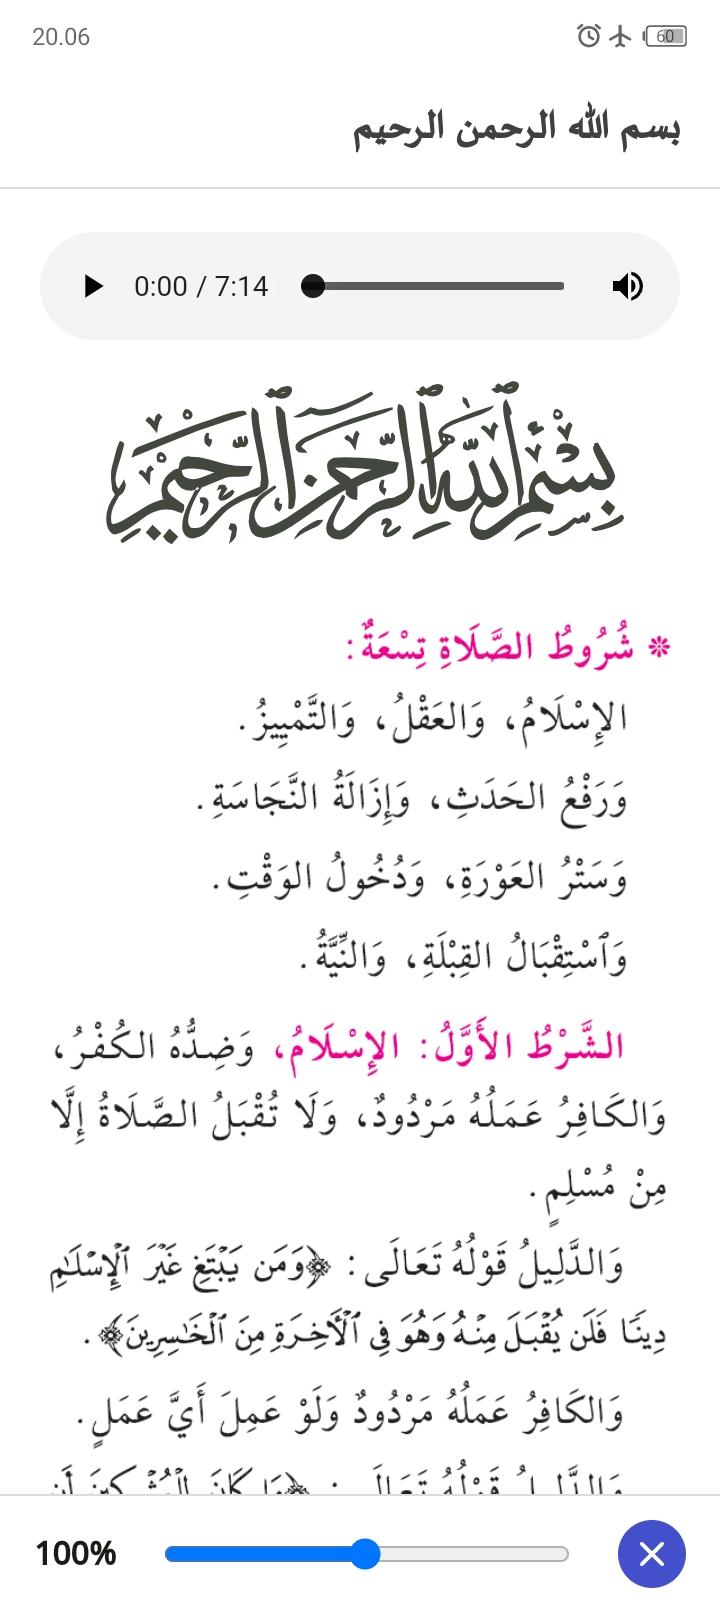 20.06
60
بسم الله الرحمن الرحيم
0:00 / 7:14
بِسْمِ ٱللَّهِ ٱلرَّحْمَٰنِ ٱلرَّحِيمِ
❊ شُرُوطُ الصَّلَاةِ تِسْعَةٌ:
الإِسْلَامُ، وَالعَقْلُ، وَالتَّمْيِيزُ.
وَرَفْعُ الحَدَثِ، وَإِزَالَةُ النَّجَاسَةِ.
وَسَتْرُ العَوْرَةِ، وَدُخُولُ الوَقْتِ.
وَٱسْتِقْبَالُ القِبْلَةِ، وَالنِّيَّةُ.
الشَّرْطُ الأَوَّلُ: الإِسْلَامُ، وَضِدُّهُ الكُفْرُ،
وَالكَافِرُ عَمَلُهُ مَرْدُودٌ، وَلَا تُقْبَلُ الصَّلَاةُ إِلَّا
مِنْ مُسْلِمٍ.
وَالدَّلِيلُ قَوْلُهُ تَعَالَى: ﴿وَمَن يَبْتَغِ غَيْرَ ٱلْإِسْلَٰمِ
دِينًا فَلَن يُقْبَلَ مِنْهُ وَهُوَ فِي ٱلْأَخِرَةِ مِنَ ٱلْخَٰسِرِينَ﴾.
وَالكَافِرُ عَمَلُهُ مَرْدُودٌ وَلَوْ عَمِلَ أَيَّ عَمَلٍ.
وَالدَّلِيلُ قَوْلُهُ تَعَالَى: ﴿مَا كَانَ لِلْمُشْرِكِينَ أَن
100%